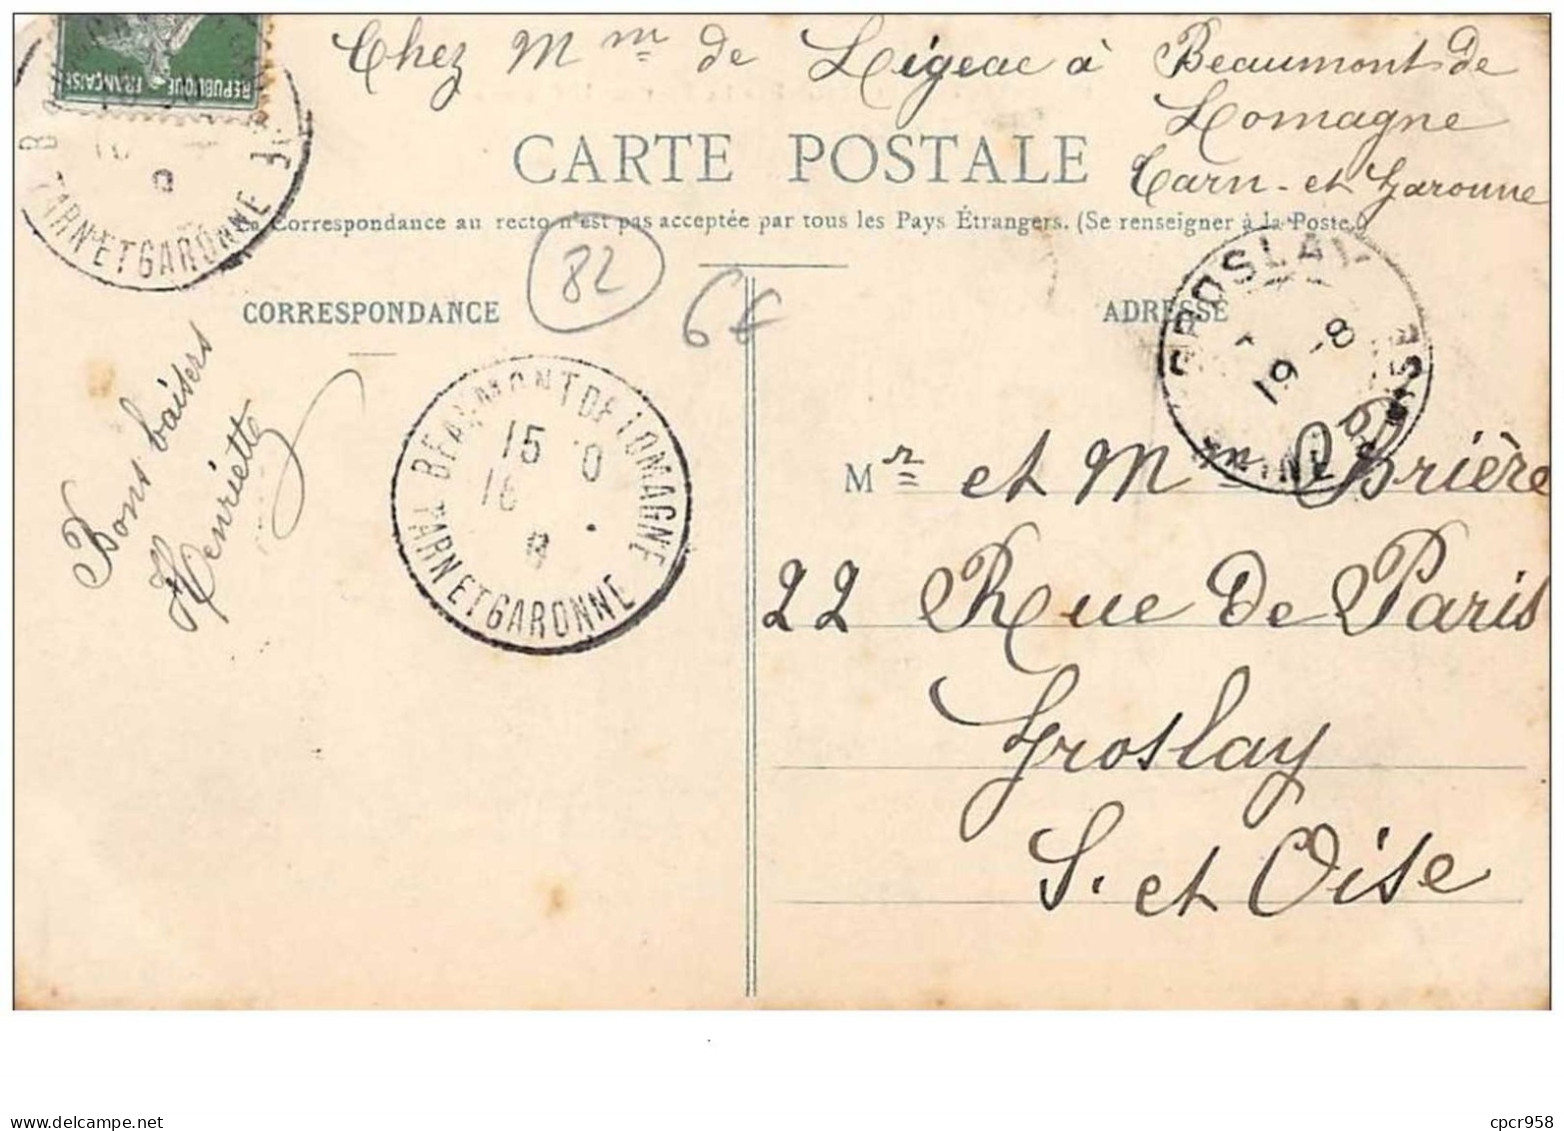 Chez Mme de Ligeac à Beaumont de
Lomagne
Tarn-et-Garonne
REPUBLIQUE FRANÇAISE
TARN ET GARONNE
CARTE POSTALE
Correspondance au recto n'est pas acceptée par tous les Pays Étrangers. (Se renseigner à la Poste.)
82
6€
CORRESPONDANCE
ADRESSE
GROSLAY
19 -8
SEINE ET OISE
Bons baisers
Henriette
BEAUMONT DE LOMAGNE
15 0
18
8
TARN ET GARONNE
Mr et Mme Brière
22 Rue De Paris
Groslay
S. et Oise
delcampe.net
cpcr958